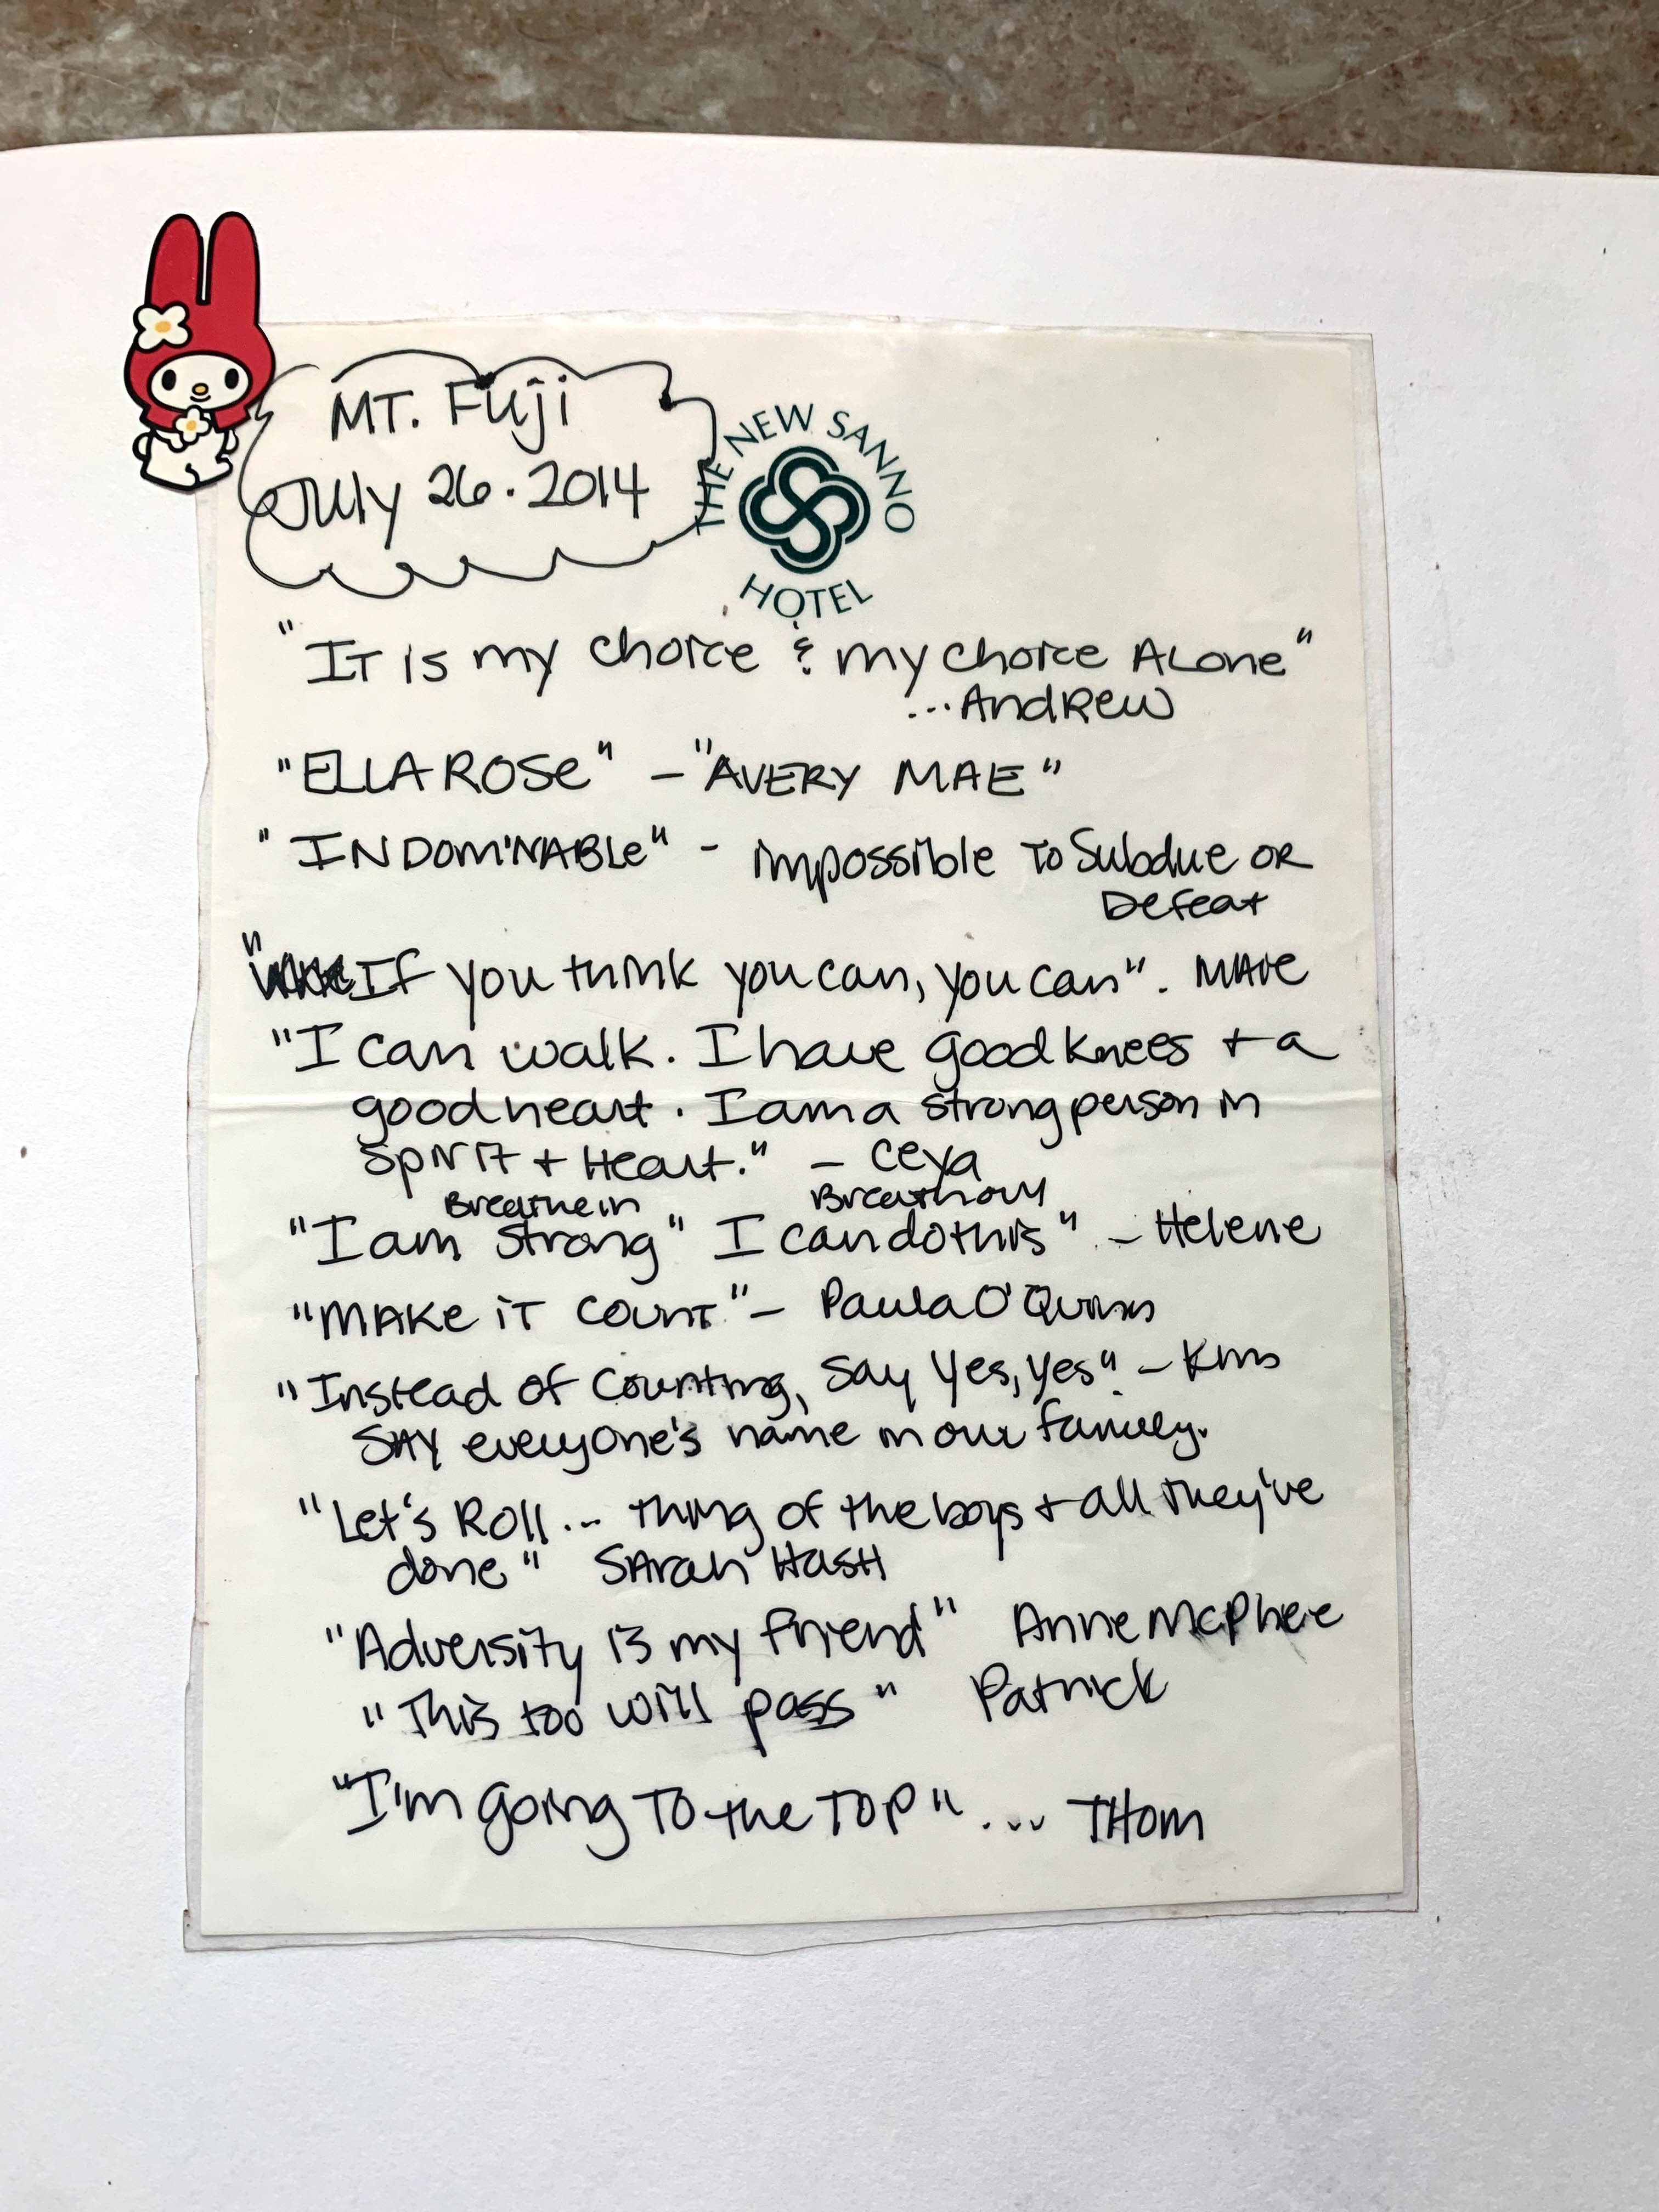 MT. Fuji
July 26.2014
THE NEW SANNO
HOTEL
"IT IS my choice & my choice ALone"
...AndRew
"ELLA ROSe" - "AVERY MAE"
"INDOMINABLe" - impossible To Subdue OR
Defeat
"If you think you can, you can".
"I can walk. I have good knees + a
good heart. I am a strong person in
Spirit + Heart." - Ceya
Breathe in Breath out
"I am strong" I can do this" - Helene
"MAKe iT COunT" - Paula O'Quinn
"Instead of Counting, Say Yes, Yes" -
SAY everyone's name in our family.
"Let's Roll... thing of the boys + all they've
done" SArah HasH
"Adversity is my friend" Anne McPhee
"This too will pass" Patrick
"I'm going To the TOP"... THom